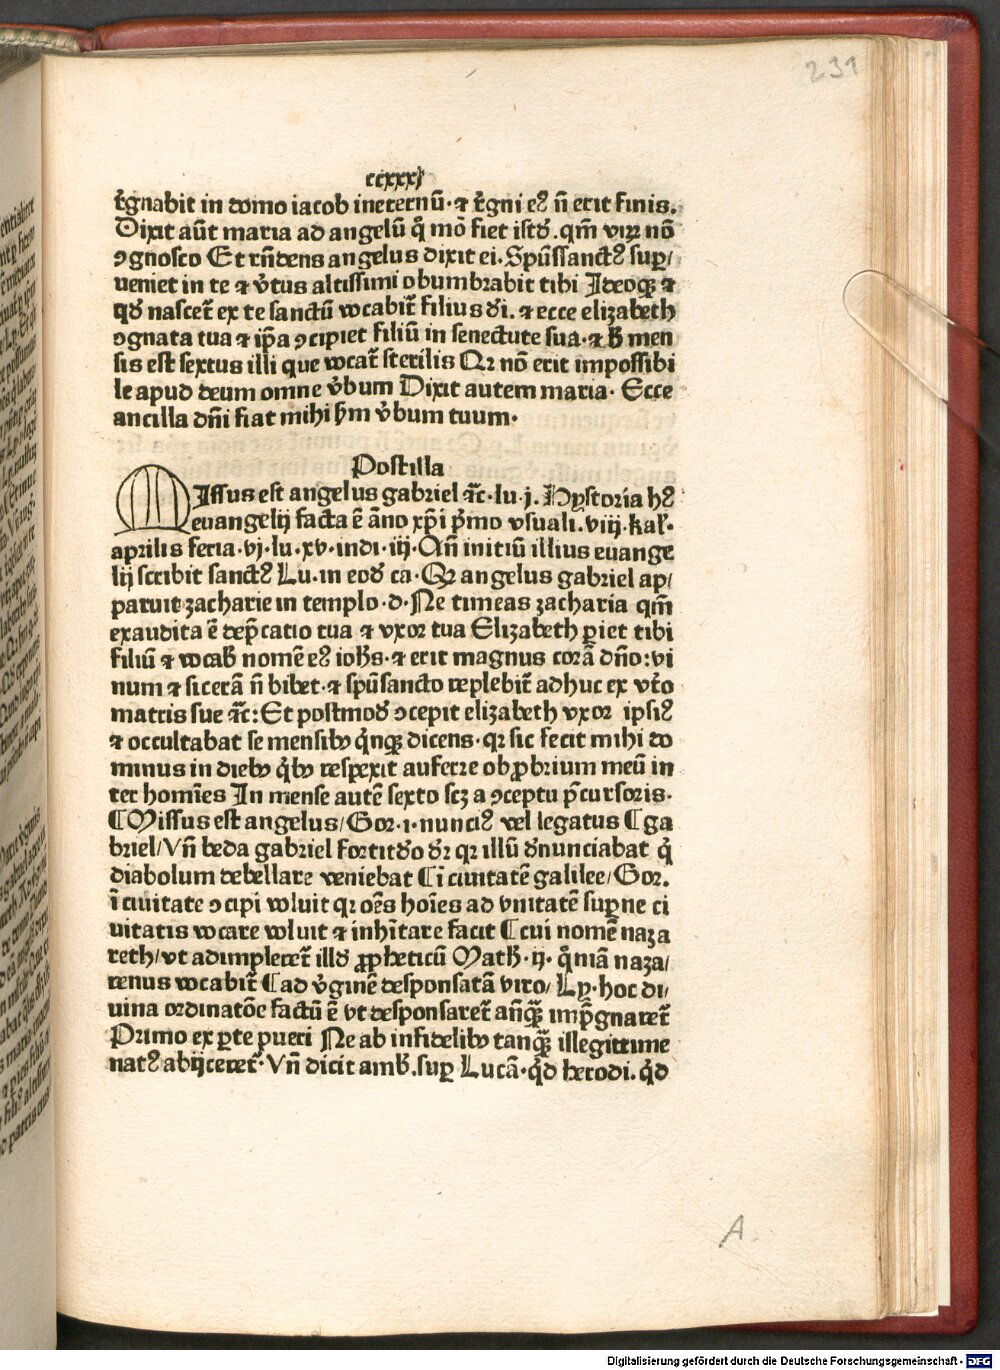 231
ccxxxj
rg̃nabit in domo iacob ineternũ· ⁊ rg̃ni eꝰ ñ erit finis.
Dixit aũt maria ad angelũ qͥ mõ fiet istđ. qm̃ viꝝ nõ
ꝯgnosco Et rñdens angelus dixit ei. Spũssanctꝰ suꝑ/
ueniet in te ⁊ v̾tus altissimi obumbrabit tibi Ideoqꝫ ⁊
qđ nascet᷑ ex te sanctũ vocabit᷑ filius đi. ⁊ ecce elizabeth
ꝯgnata tua ⁊ ip̃a ꝯcipiet filiũ in senectute sua· ⁊ ħ men
sis est sextus illi que vocat᷑ sterilis Qꝛ nõ erit impossibi
le apud deum omne v̾bum Dixit autem maria· Ecce
ancilla dñi fiat mihi ẜm v̾bum tuum·
Postilla
MIssus est angelus gabriel ⁊c̃·lu·j. Hystoria hꝰ
euangelij facta ẽ ãno xp̃i pͥmo vsuali. viij. kal̛·
aprilis feria·vj·lu·xv·indi·iij·Añ initiũ illius euange
lij scribit sanctꝰ Lu·in eođ ca·Qꝛ angelus gabriel ap/
paruit zacharie in templo·d·Ne timeas zacharia qm̃
exaudita ẽ dep̃catio tua ⁊ vxor tua Elizabeth ꝑiet tibi
filiũ ⁊ vocab̛ nomẽ eꝰ ioħs·⁊ erit magnus corã dño:vi
num ⁊ sicerã ñ bibet·⁊ spũsancto replebit᷑ adhuc ex vt̾o
matris sue ⁊c̃:Et postmođ ꝯcepit elizabeth vxor ipsiꝰ
⁊ occultabat se mensibꝫ qͥnqꝫ dicens·qꝛ sic fecit mihi do
minus in diebꝫ qͥbꝫ respexit auferre obꝓbrium meũ in
ter homĩes In mense autẽ sexto scꝫ a ꝯceptu p̃cursoris·
⸿Missus est angelus/Gor·i·nunciꝰ vel legatus ⸿ga
briel/Vñ beda gabriel fortitđo đꝛ qꝛ illũ đnunciabat qͥ
diabolum debellare veniebat ⸿ĩ ciuitatẽ galilee/Gor.
ĩ ciuitate ꝯcipi voluit qꝛ oẽs hoĩes ad vnitatẽ suꝑne ci
uitatis vocare voluit ⁊ inhĩtare facit ⸿cui nomẽ naza
reth/vt adimpleret᷑ illđ ꝓpheticũ Math̛·ij·qͦniã naza/
renus vocabit᷑ ⸿ad v̾ginẽ desponsatã viro/ Ly·hoc di/
uina ordinatõe factũ ẽ vt desponsaret᷑ añqꝫ̃ imp̃gnaret᷑
Primo ex ꝑte pueri Ne ab infidelibꝫ tanqꝫ̃ illegittime
natꝰ abijceret᷑·Vñ dicit amb̛.suꝑ Lucã·qđ herodi.qđ
A.
Digitalisierung gefördert durch die Deutsche Forschungsgemeinschaft - DFG